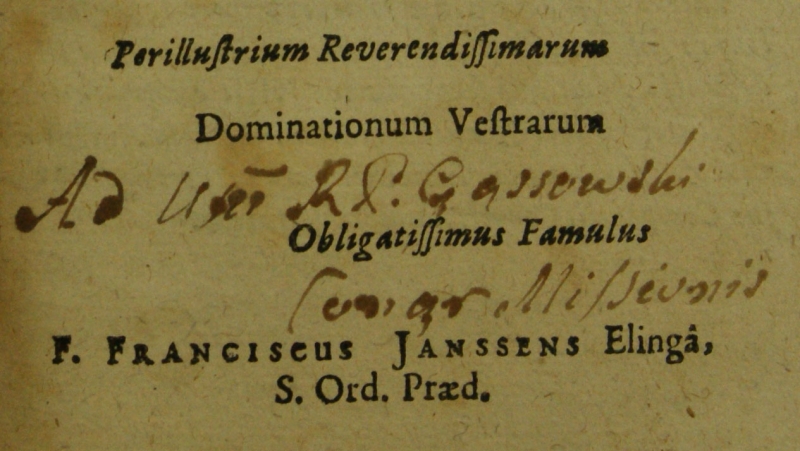 Perillustrium Reverendissimarum
Dominationum Vestrarum
Ad Usũ R P. Gąssowski
Obligatissimus Famulus
Congr Missionis
F. FRANCISCUS JANSSENS Elingâ,
S. Ord. Præd.